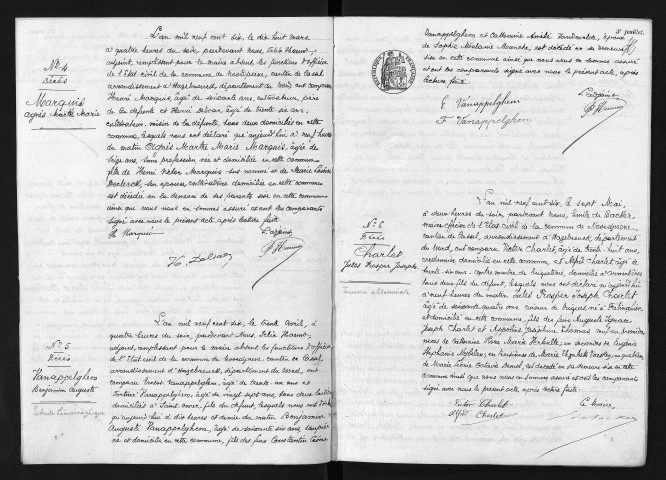 N° 4
Décès
Marquis
Agnès Marthe Marie
L'an mil neuf cent six, le dix huit mars
à quatre heures du soir, pardevant nous,
adjoint, remplissant pour le maire absent, les fonctions d'officier
de l'Etat civil de la commune de Noordpeene, canton de Cassel
arrondissement d'Hazebrouck, département du Nord ont comparu
Henri Marquis, âgé de soixante ans, cultivateur, père
de la défunte et Henri Delvar, âgé de trente six ans,
cultivateur, voisin de la défunte, tous deux domiciliés en cette
commune, lesquels nous ont déclaré qu'aujourd'hui à neuf heures
du matin Agnès Marthe Marie Marquis, âgée de
vingt ans, sans profession née et domiciliée en cette commune
fille de Henri Victor Marquis sus nommé et de Marie
son épouse, cultivatrice domiciliée en cette commune
est décédée en la demeure de ses parents sise en cette commune
ainsi que nous nous en sommes assuré et ont les comparants
signé avec nous le présent acte après lecture faite
H. Marquis L'adjoint
N° 5
Décès
Vanappelghem
Benjamin Auguste
L'an mil neuf cent six, le trente avril, à
quatre heures du soir, pardevant nous
adjoint, remplissant pour le maire absent les fonctions d'officier
de l'Etat civil de la commune de Noordpeene, canton de Cassel
arrondissement d'Hazebrouck, département du Nord, ont
comparu Ernest Vanappelghem, âgé de trente un ans et
Fortuné Vanappelghem, âgé de vingt sept ans, tous deux
domiciliés à Saint Omer, fils du défunt, lesquels nous ont déclaré
qu'aujourd'hui à dix heures et demie du matin Benjamin
Auguste Vanappelghem, âgé de soixante six ans,
né et domicilié en cette commune, fils des feus Constantin César
Vanappelghem et Catherine Amélie Vandewalle, époux
de Sophie Mélanie Manche, est décédé en sa demeure
sise en cette commune ainsi que nous nous en sommes assuré
et ont les comparants signé avec nous le présent acte, après
lecture faite
L'adjoint
E. Vanappelghem
F. Vanappelghem
N° 6
Décès
Charlet
Jules Prosper Joseph
L'an mil neuf cent six, le sept Mai,
à deux heures du soir, pardevant nous, Emile De Backer
maire officier de l'Etat civil de la commune de Noordpeene,
canton de Cassel, arrondissement d'Hazebrouck, département
du Nord, ont comparu Victor Charlet, âgé de trente huit ans,
cordonnier domicilié en cette commune, et Alfred Charlet âgé de
trente six ans, contre maître de briqueterie, domicilié à Armentières
tous deux fils du défunt, lesquels nous ont déclaré qu'aujourd'hui
à neuf heures du matin Jules Prosper Joseph Charlet
âgé de soixante quatre ans cuiseur de briques, né à
et domicilié en cette commune, fils des feus Auguste Ignace
Joseph Charlet et Joséphine Thomas, veuf en premières
noces de Catherine Rose Marie Herbulle, en secondes de Eugénie
Stéphanie, en troisièmes de Marie Elisabeth, en quatrièmes
de Marie Louise Octavie, est décédé en sa demeure sise en cette
commune ainsi que nous nous en sommes assuré et ont les comparants
signé avec nous le présent acte après lecture faite.
Victor Charlet Le Maire,
Alfred Charlet